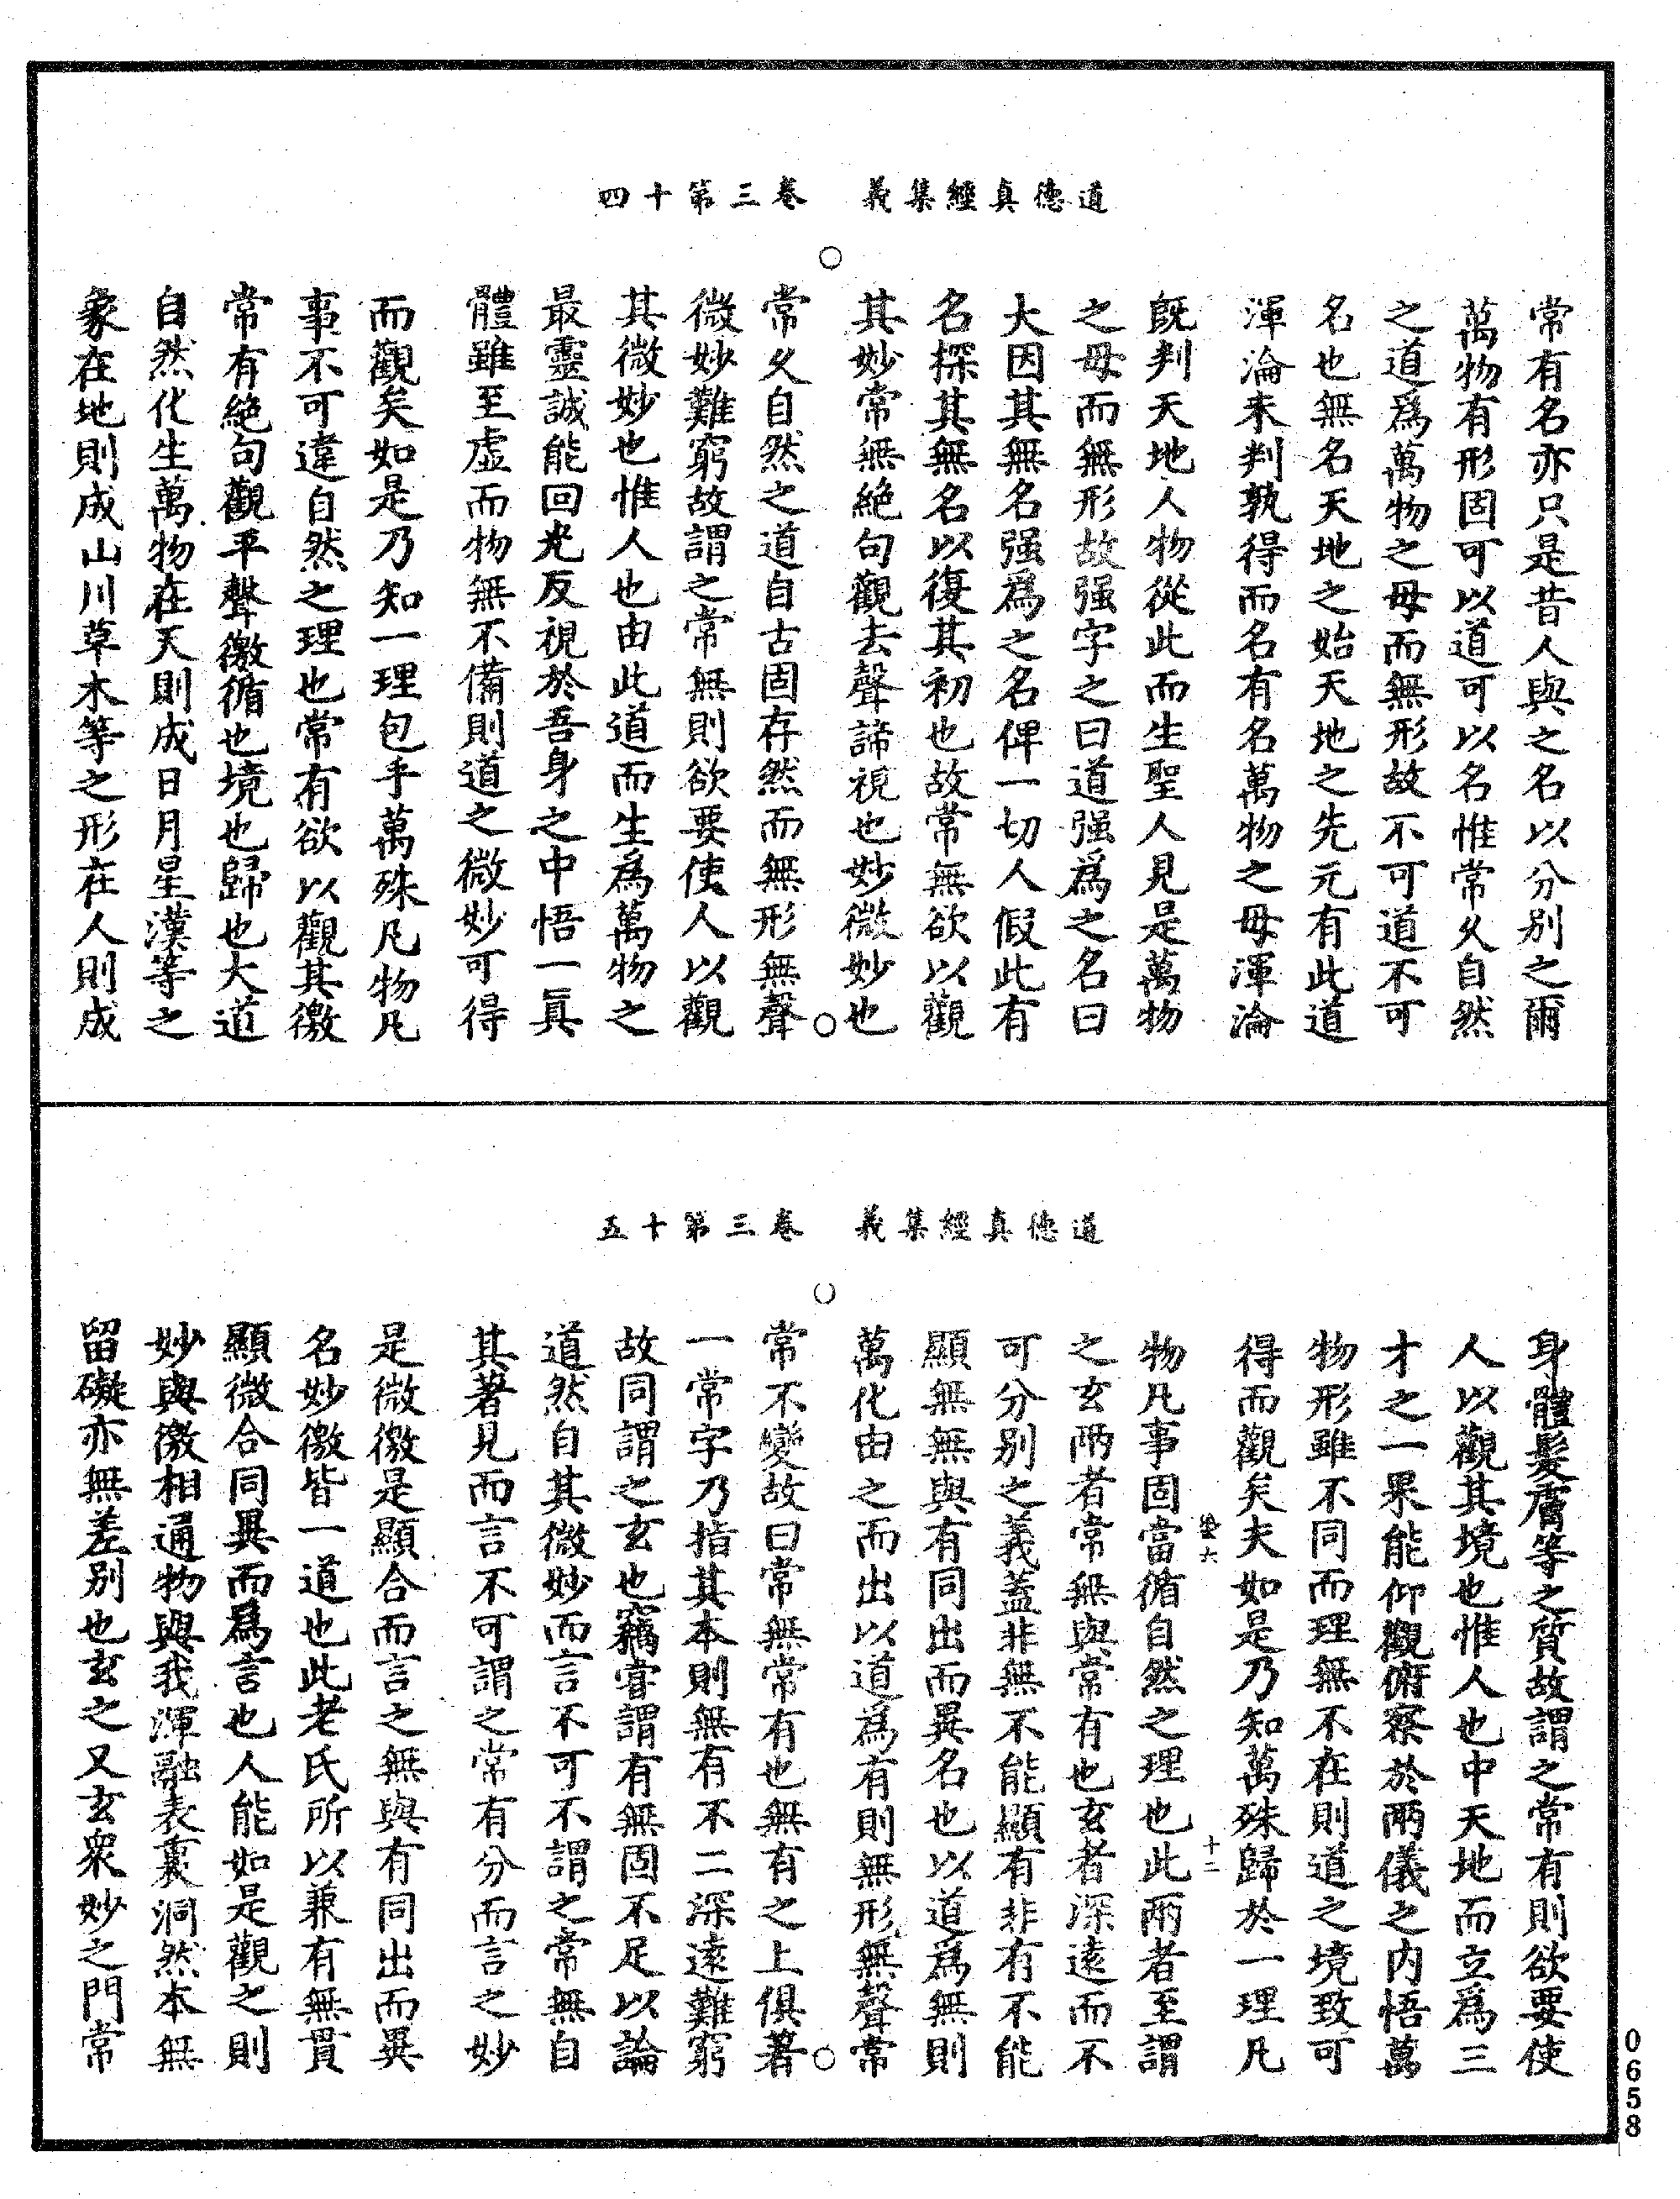 道德真經集義　卷三第十四
常有名亦只是昔人與之名以分別之爾
萬物有形固可以道可以名惟常久自然
之道爲萬物之母而無形故不可道不可
名也無名天地之始天地之先元有此道
渾淪未判孰得而名有名萬物之母渾淪
旣判天地人物從此而生聖人見是萬物
之母而無形故强字之曰道强爲之名曰
大因其無名强爲之名俾一切人假此有
名探其無名以復其初也故常無欲以觀
其妙常無絶句觀去聲諦視也妙微妙也
常久自然之道自古固存然而無形無聲
微妙難窮故謂之常無則欲要使人以觀
其微妙也惟人也由此道而生爲萬物之
最靈誠能回光反視於吾身之中悟一眞
體雖至虛而物無不備則道之微妙可得
而觀矣如是乃知一理包乎萬殊凡物凡
事不可違自然之理也常有欲以觀其徼
常有絶句觀平聲徼循也境也歸也大道
自然化生萬物在天則成日月星漢等之
象在地則成山川草木等之形在人則成
道德真經集義　卷三第十五
身體髮膚等之質故謂之常有則欲要使
人以觀其境也惟人也中天地而立爲三
才之一果能仰觀俯察於兩儀之內悟萬
物形雖不同而理無不在則道之境致可
得而觀矣夫如是乃知萬殊歸於一理凡
六　十二
物凡事固當循自然之理也此兩者至謂
之玄兩者常無與常有也玄者深遠而不
可分別之義蓋非無不能顯有非有不能
顯無無與有同出而異名也以道爲無則
萬化由之而出以道為有則無形無聲常
常不變故曰常無常有也無有之上俱著
一常字乃指其本則無有不二深遠難窮
故同謂之玄也竊嘗謂有無固不足以論
道然自其微妙而言不可不謂之常無自
其著見而言不可謂之常有分而言之妙
是微徼是顯合而言之無與有同出而異
名妙徼皆一道也此老氏所以兼有無貫
顯微合同異而爲言也人能如是觀之則
妙與徼相通物與我渾融表裏洞然本無
留礙亦無差別也玄之又玄衆妙之門常
0658